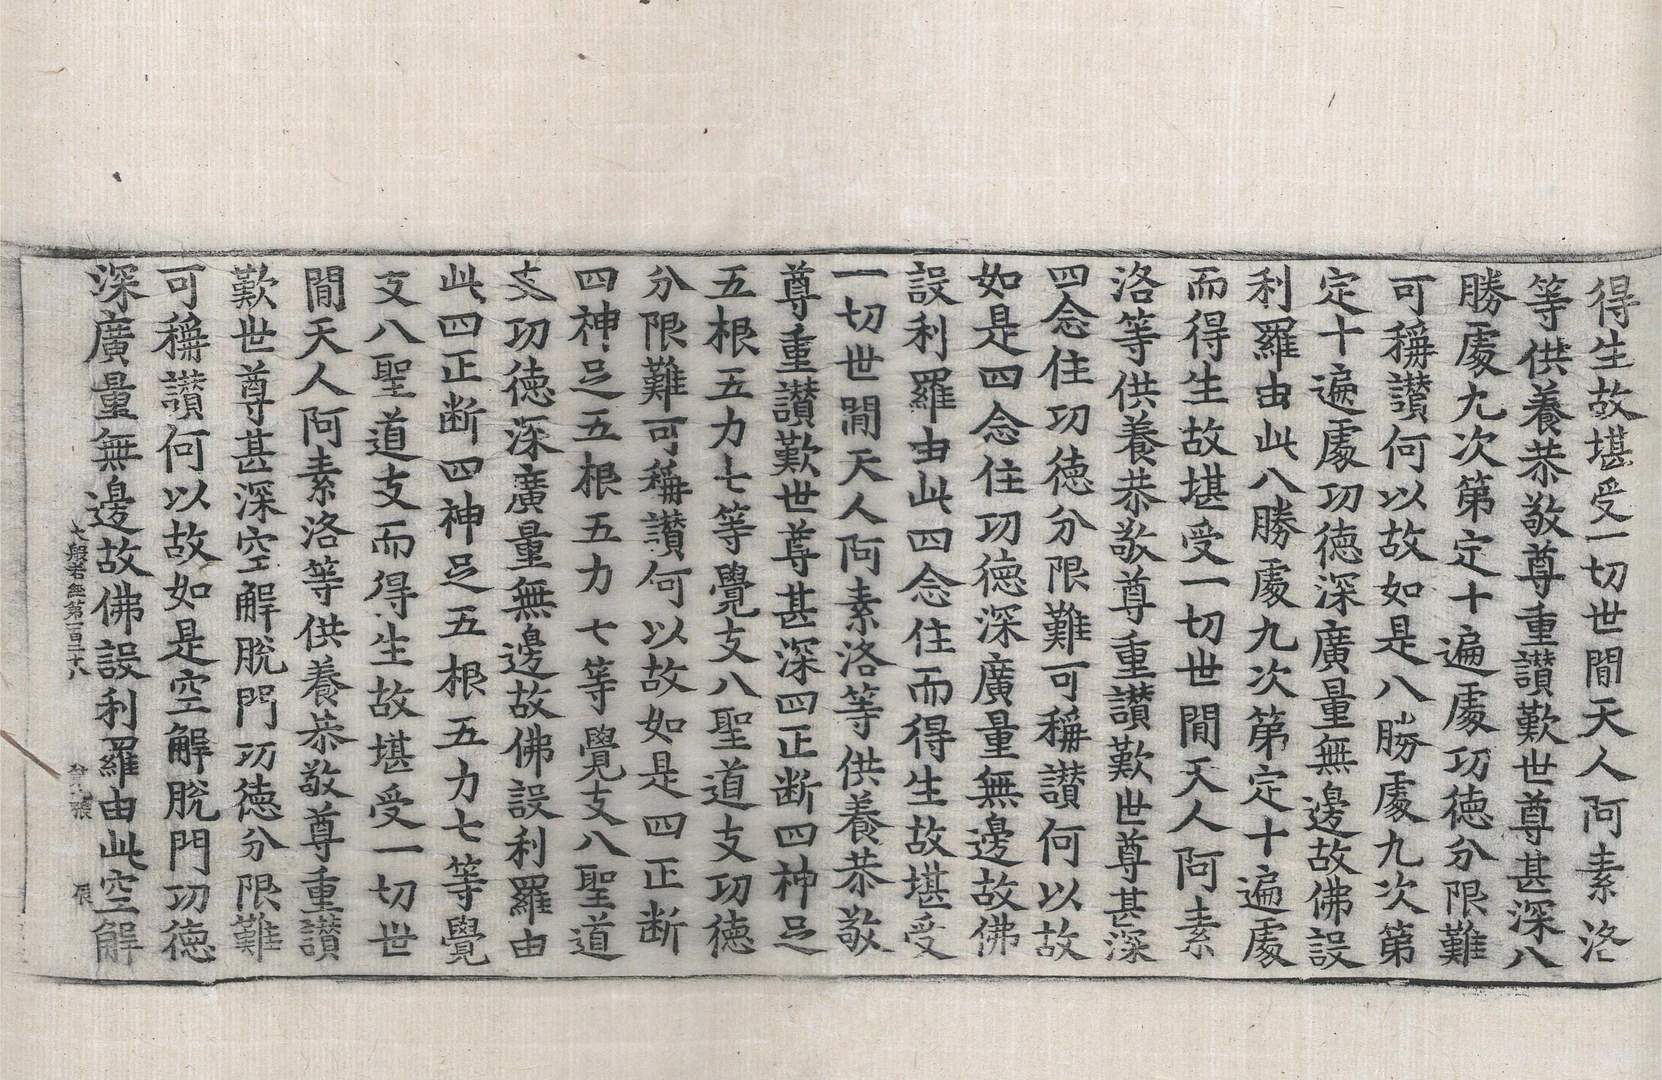 得生故堪受一切世間天人阿素洛
等供養恭敬尊重讃歎世尊甚深八
勝處九次第定十遍處功德分限難
可稱讃何以故如是八勝處九次第
定十遍處功德深廣量無邊故佛設
利羅由此八勝處九次第定十遍處
而得生故堪受一切世間天人阿素
洛等供養恭敬尊重讃歎世尊甚深
四念住功德分限難可稱讃何以故
如是四念住功德深廣量無邊故佛
設利羅由此四念住而得生故堪受
一切世間天人阿素洛等供養恭敬
尊重讃歎世尊甚深四正断四神足
五根五力七等覺支八聖道支功德
分限難可稱讃何以故如是四正断
四神足五根五力七等覺支八聖道
支功德深廣量無邊故佛設利羅由
此四正断四神足五根五力七等覺
支八聖道支而得生故堪受一切世
間天人阿素洛等供養恭敬尊重讃
歎世尊甚深空解脫門功德分限難
可稱讃何以故如是空解脫門功德
深廣量無邊故佛設利羅由此空解
大般若經第一百二十八 張